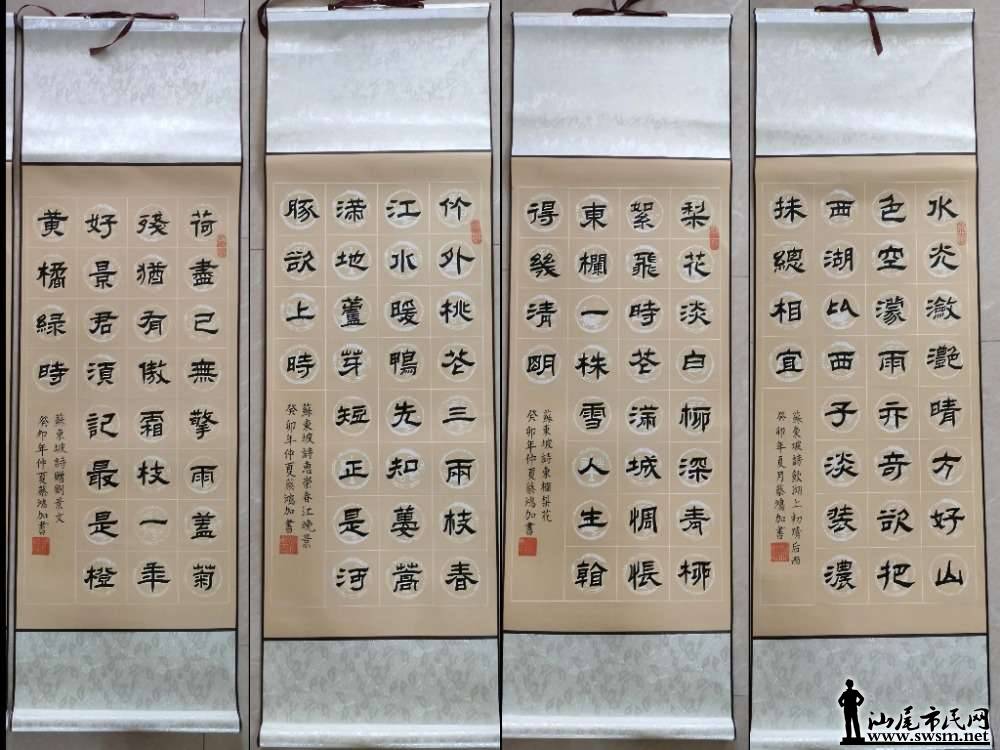 水光瀲灧晴方好山
色空濛雨亦奇欲把
西湖比西子淡裝濃
抹總相宜
蘇東坡詩飲湖上初晴后雨
癸卯年夏月蔡鴻加書
梨花淡白柳深青柳
絮飛時花滿城惆悵
東欄一株雪人生看
得幾清明
蘇東坡詩東欄梨花
癸卯年仲夏蔡鴻加書
竹外桃花三兩枝春
江水暖鴨先知蔞蒿
滿地蘆芽短正是河
豚欲上時
蘇東坡詩惠崇春江晚景
癸卯年仲夏蔡鴻加書
荷盡已無擎雨蓋菊
殘猶有傲霜枝一年
好景君須記最是橙
黄橘緑時
蘇東坡詩贈劉景文
癸卯年仲夏蔡鴻加書
汕尾市民网
www.swsm.net